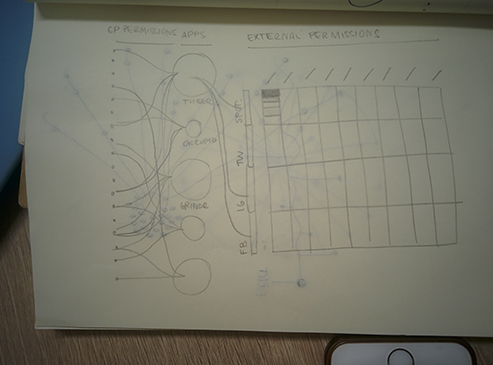 OP PERMISSIONS APPS
EXTERNAL PERMISSIONS
TINDER
GRINDR
SPOT
TW
IG
FB